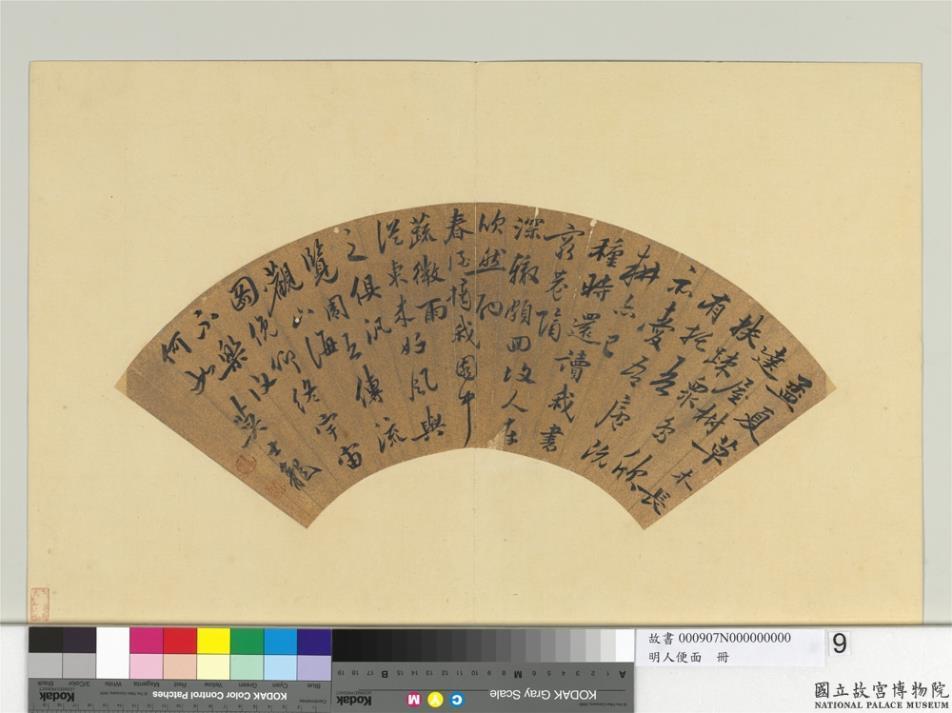 孟夏草木長
遶屋樹
扶疎眾鳥欣
有托吾
亦愛吾廬既
耕亦已
種時還讀我書
窮巷隔
深轍頗回故人車
欣然酌
春酒摘我園中
蔬微雨
從東來好風與
之俱汎
覽周王傳流
觀山海
圖俯仰終宇宙
不樂復
何如
吳士龍
KODAK Color Control Patches
Blue
Cyan
Green
Yellow
Red
Magenta
White
3/Color
Black
Kodak
KODAK Gray Scale
C
Y
M
Kodak
A 1 2 3 4 5 6 M 8 9 10 11 12 13 14 15 B 17 18 19
故書 000907N000000000
明人便面 冊
9
國立故宮博物院
NATIONAL PALACE MUSEUM